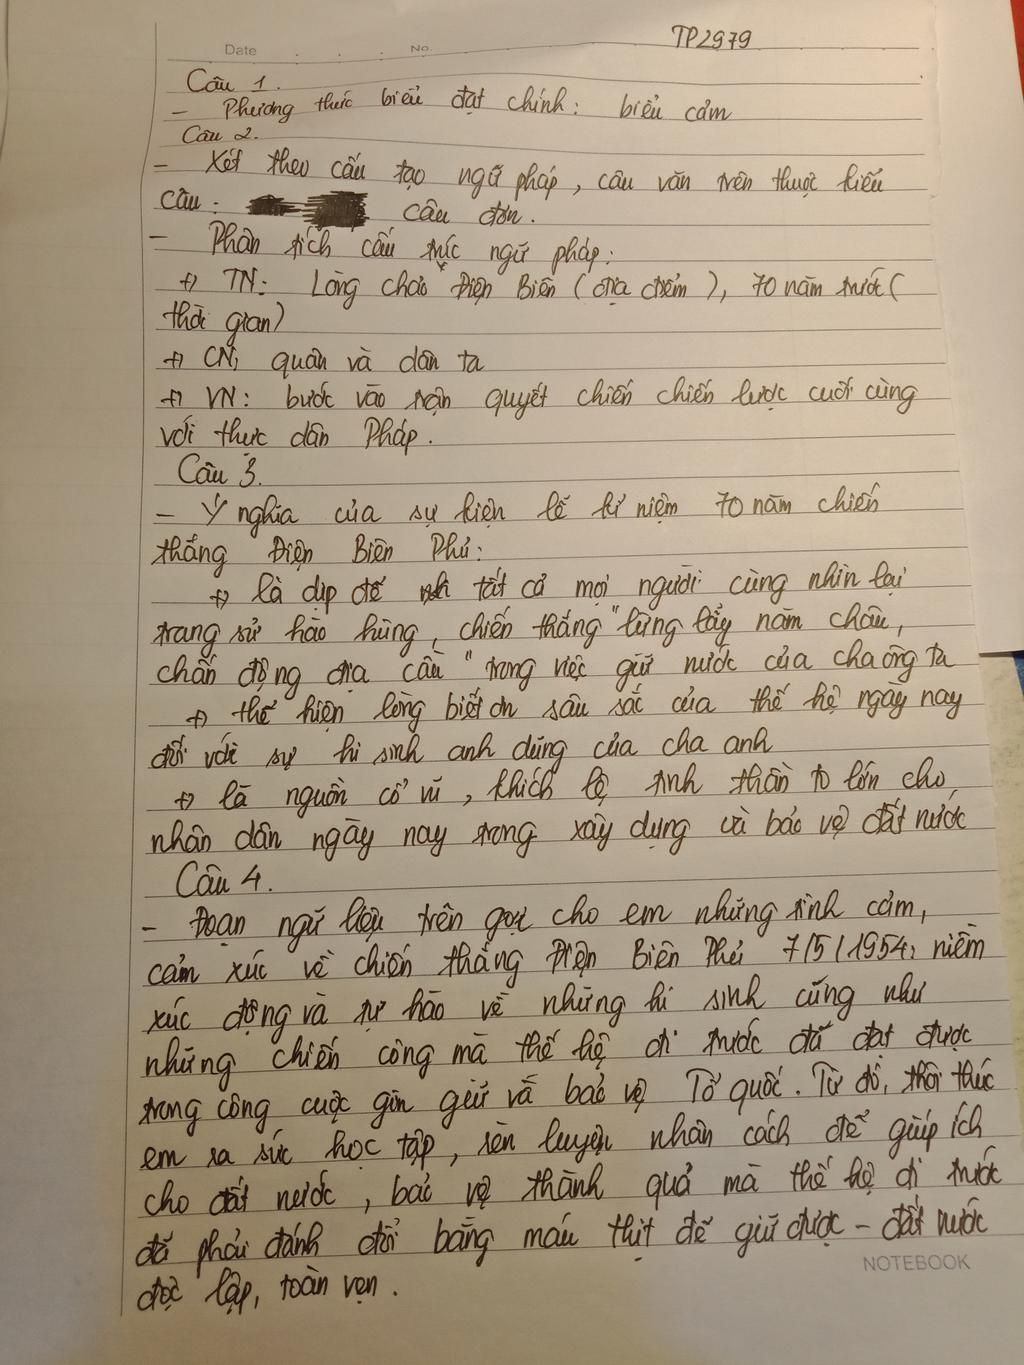 TP2979
Date . . . No.
Câu 1.
- Phương thức biểu đạt chính: biểu cảm
Câu 2.
- Xét theo cấu tạo ngữ pháp, câu văn trên thuộc kiểu
câu: câu đơn.
- Phân tích cấu trúc ngữ pháp:
+) TN: Lòng chảo Điện Biên (địa điểm), 70 năm trước (
thời gian)
+) CN: quân và dân ta
+) VN: bước vào trận quyết chiến chiến lược cuối cùng
với thực dân Pháp.
Câu 3.
- Ý nghĩa của sự kiện lễ kỉ niệm 70 năm chiến
thắng Điện Biên Phủ:
+) là dịp để tất cả mọi người cùng nhìn lại
trang sử hào hùng, chiến thắng "lừng lẫy năm châu,
chấn động địa cầu" trong việc giữ nước của cha ông ta
+) thể hiện lòng biết ơn sâu sắc của thế hệ ngày nay
đối với sự hi sinh anh dũng của cha anh
+) là nguồn cổ vũ, khích lệ tinh thần to lớn cho
nhân dân ngày nay trong xây dựng và bảo vệ đất nước
Câu 4.
- Đoạn ngữ liệu trên gợi cho em những tình cảm,
cảm xúc về chiến thắng Điện Biên Phủ 7/5/1954: niềm
xúc động và tự hào về những hi sinh cũng như
những chiến công mà thế hệ đi trước đã đạt được
trong công cuộc gìn giữ và bảo vệ Tổ quốc. Từ đó, thôi thúc
em ra sức học tập, rèn luyện nhân cách để giúp ích
cho đất nước, bảo vệ thành quả mà thế hệ đi trước
đã phải đánh đổi bằng máu thịt để giữ được - đất nước
độc lập, toàn vẹn.
NOTEBOOK